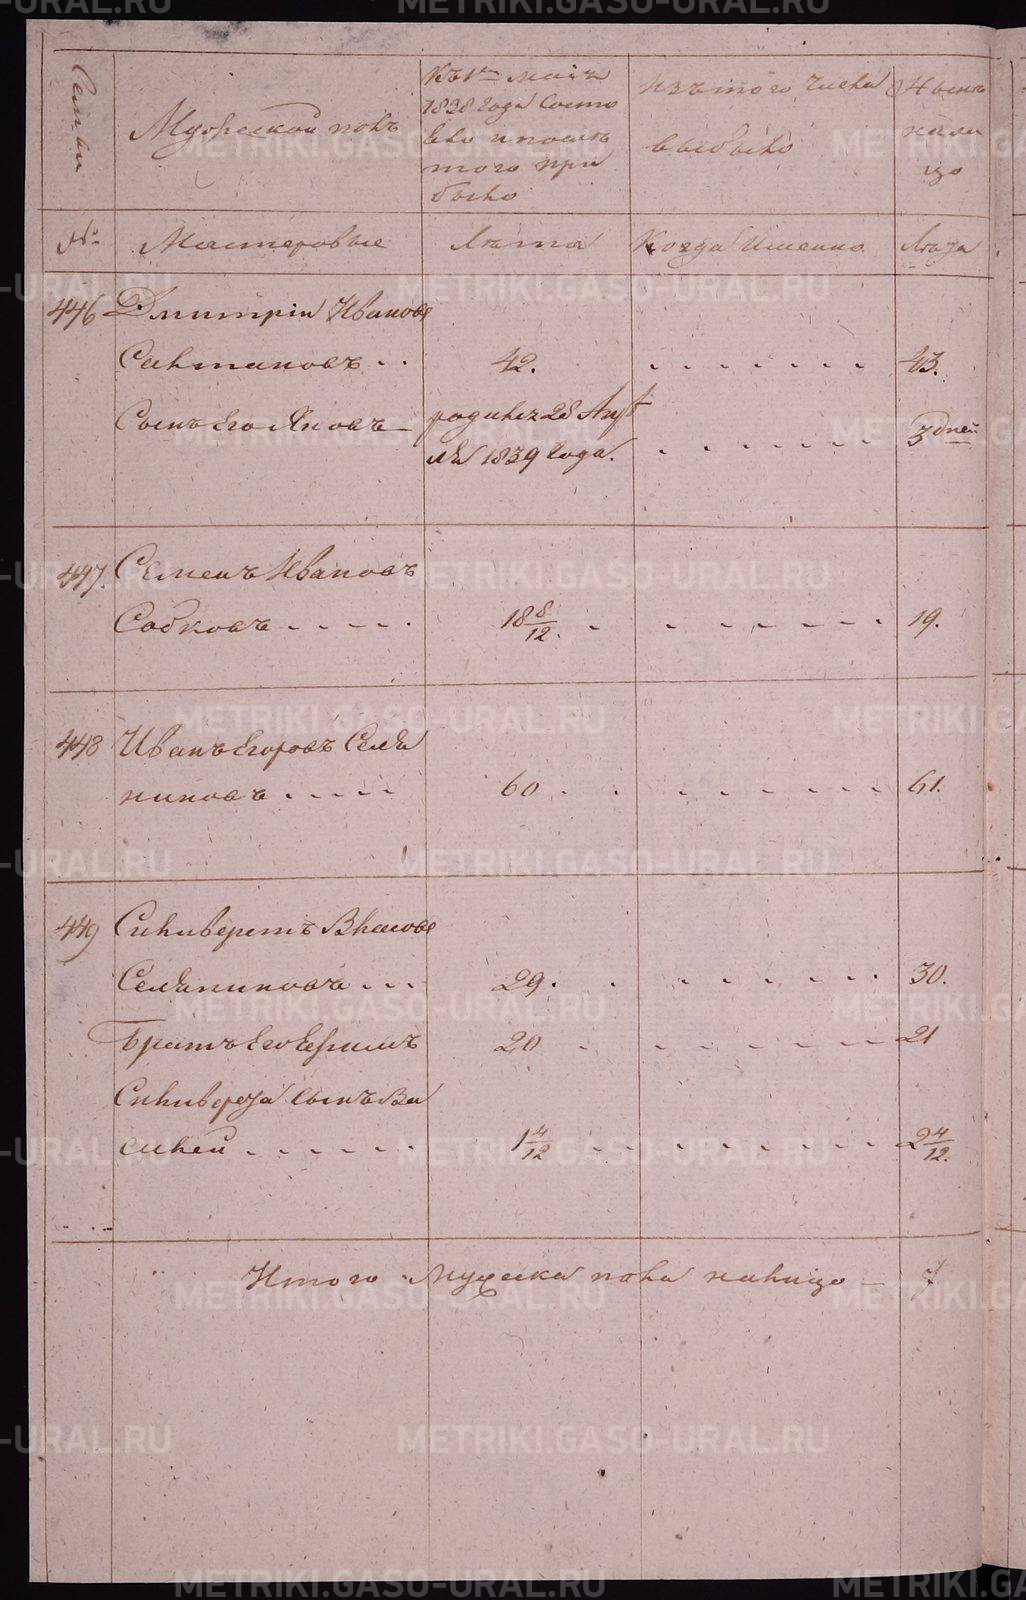 METRIKI.GASO-URAL.RU
Семьи
Мужеской полъ
Къ 1е маiя
1838 года состо
яло и посль
того при
было
изъ того числа
выбыло
Нынь
нали
цо
№
Мастеровые
Льта
Когда именно
Льта
446 Дмитрiй Ивановъ
Сантановъ 42. 43.
Сынъ его Яковъ родился 28 Апре
ля 1839 года. 3 дней
447. Семенъ Ивановъ
Собковъ 18 8/12. 19.
448 Иванъ Егоровъ Селя
ниновъ 60 61.
449 Силиверстъ Власовъ
Селяниновъ 29. 30.
Братъ его Ефимъ 20 21
Силиверста сынъ Ва
силей 1 4/12 2 4/12.
Итого мужеска пола налицо 7